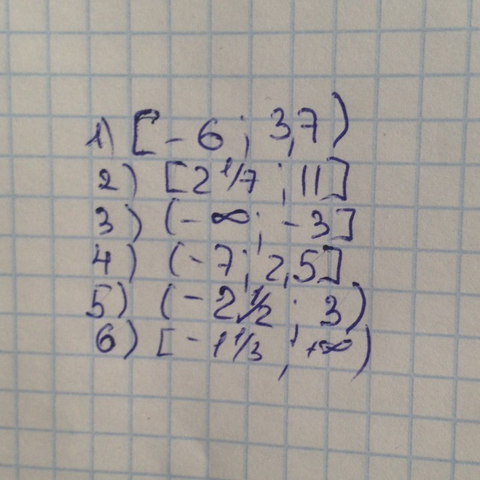 1) [-6; 3,7)
2) [2 1/7; 11]
3) (-∞; -3]
4) (-7; 2,5]
5) (-2 1/2; 3)
6) [-1 1/3; +∞)